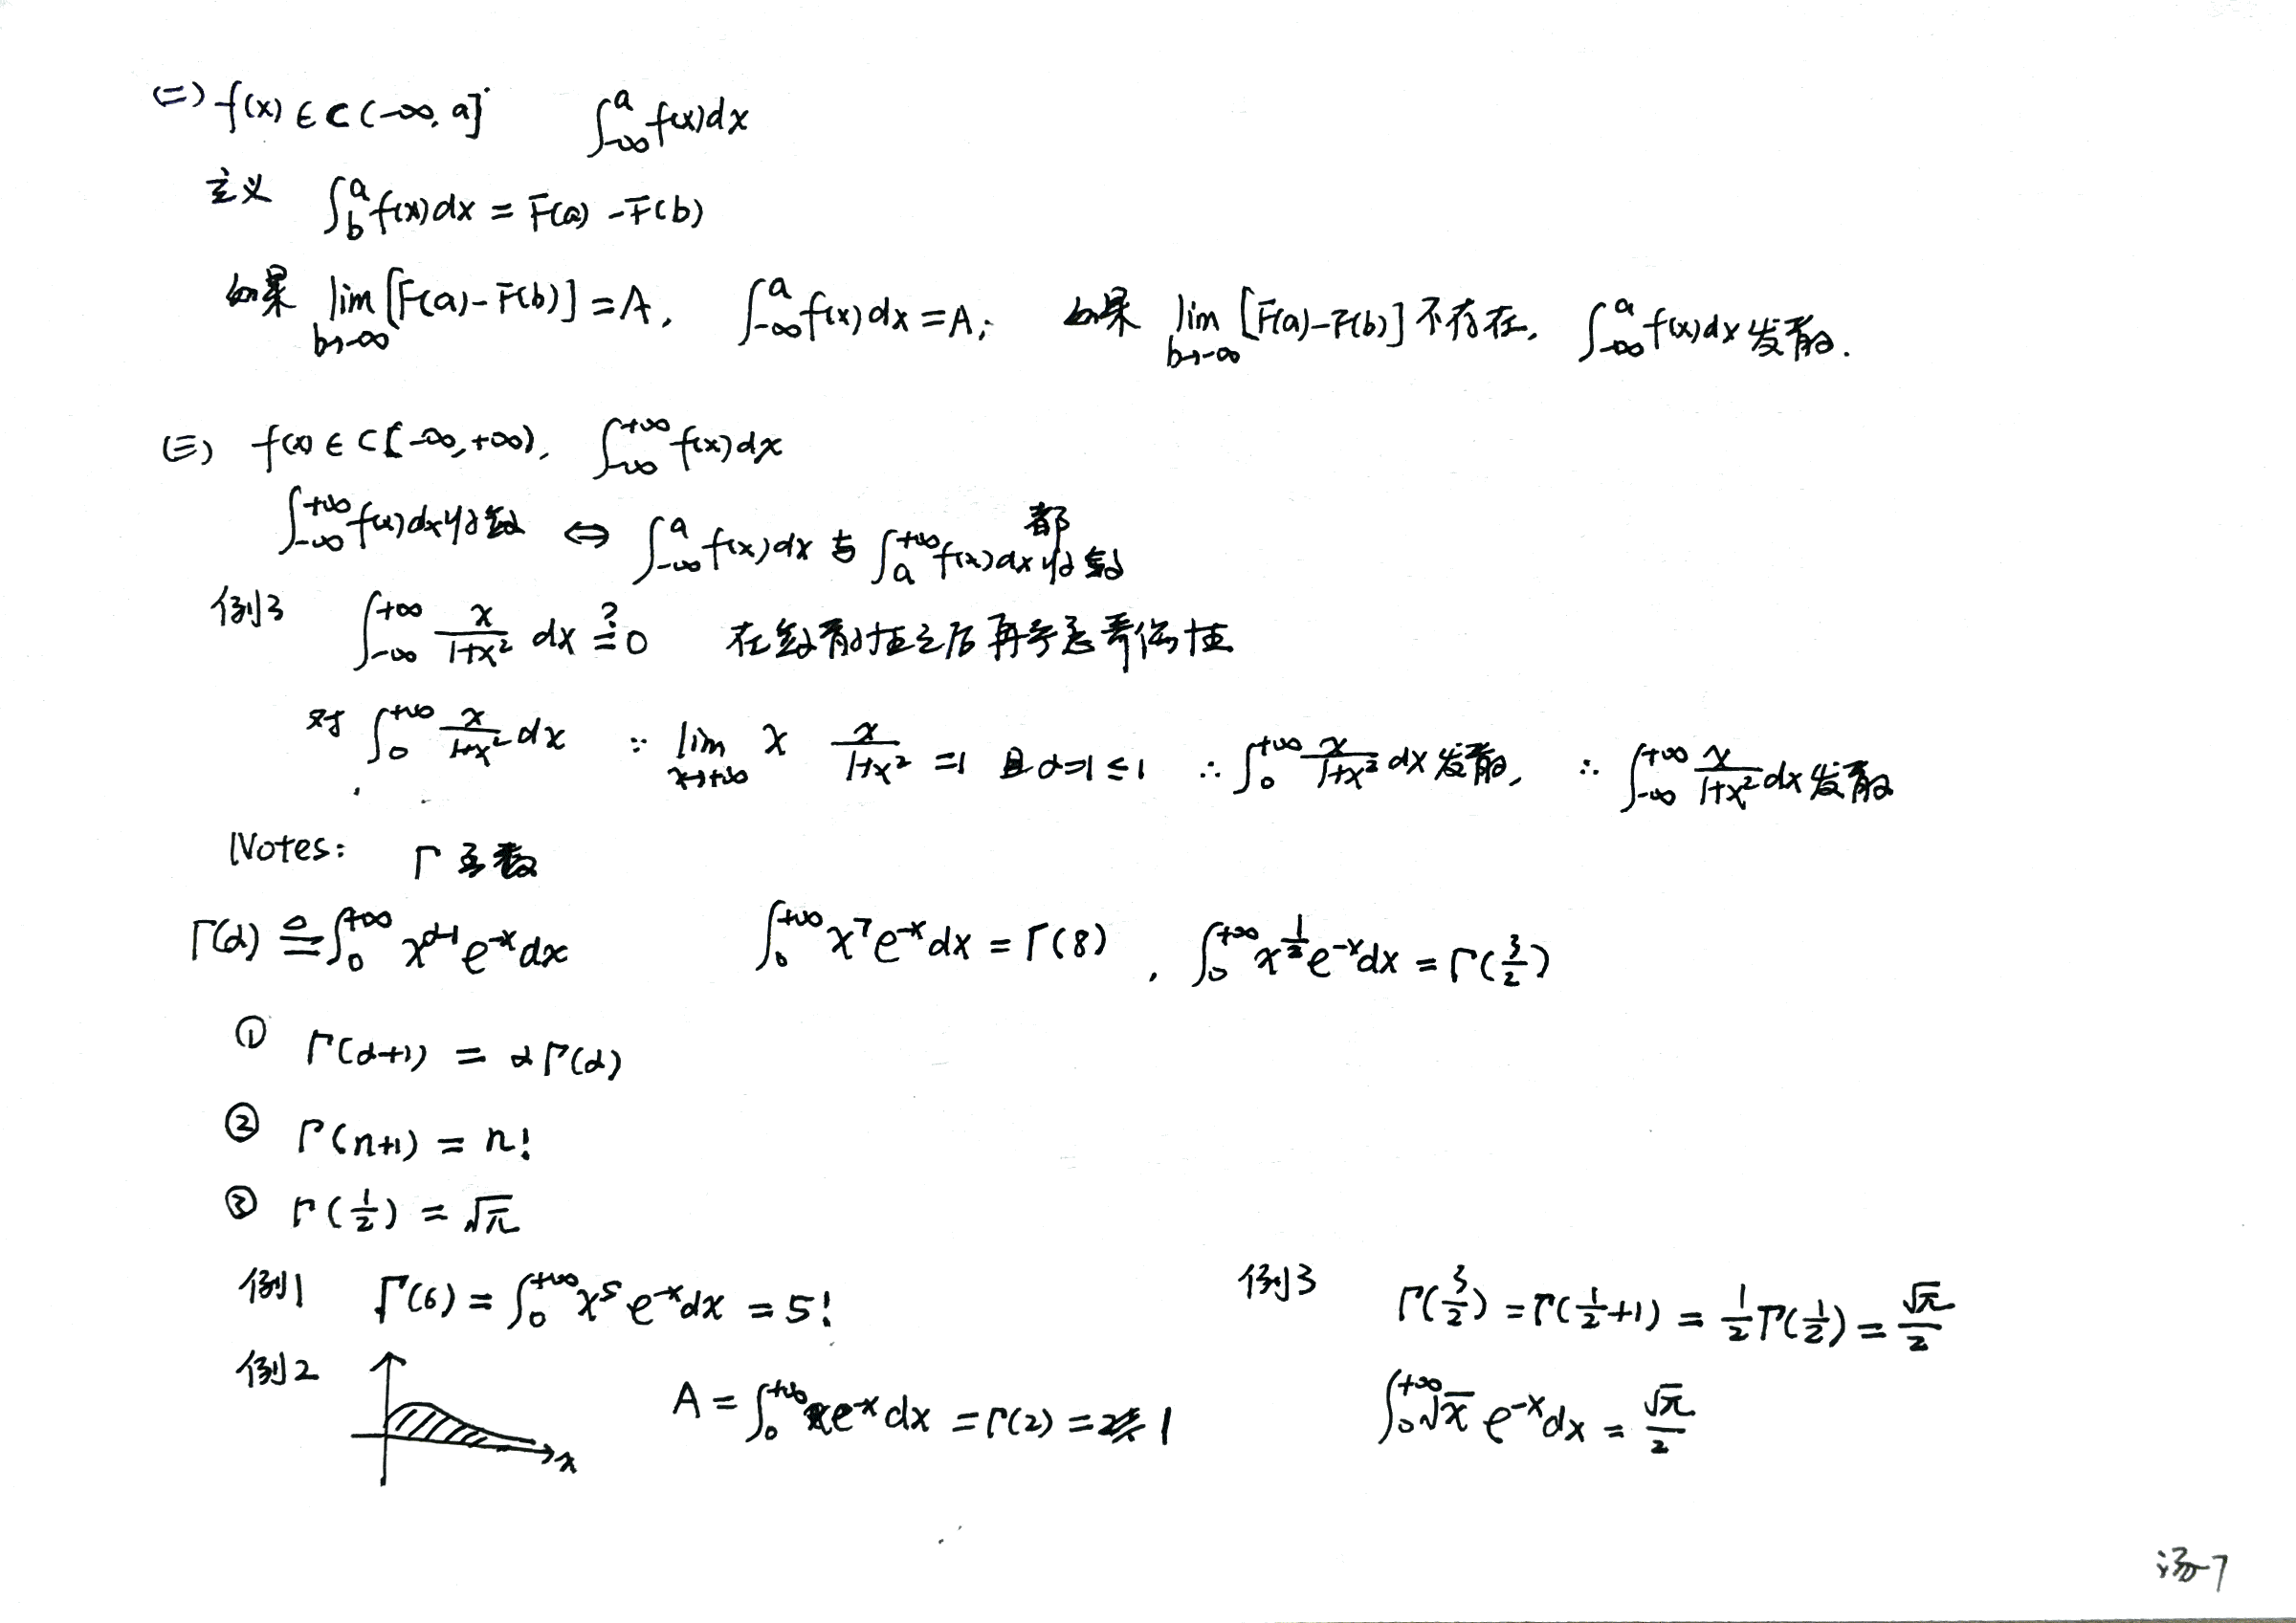 (二) f(x)∈C(-∞, a] ∫_{-∞}^{a} f(x)dx
定义 ∫_{b}^{a} f(x)dx = F(a) - F(b)
如果 lim_{b→-∞} [F(a)-F(b)] = A, ∫_{-∞}^{a} f(x)dx = A; 如果 lim_{b→-∞} [F(a)-F(b)] 不存在, ∫_{-∞}^{a} f(x)dx 发散.
(三) f(x)∈C(-∞,+∞), ∫_{-∞}^{+∞} f(x)dx
∫_{-∞}^{+∞} f(x)dx 收敛 ⇔ ∫_{-∞}^{a} f(x)dx 与 ∫_{a}^{+∞} f(x)dx 都收敛
例3 ∫_{-∞}^{+∞} \frac{x}{1+x²} dx ≟ 0 在敛散性之后再考虑奇偶性
对 ∫_{0}^{+∞} \frac{x}{1+x²} dx ∵ lim_{x→+∞} x \frac{x}{1+x²} = 1 且 α=1≤1 ∴ ∫_{0}^{+∞} \frac{x}{1+x²} dx 发散, ∴ ∫_{-∞}^{+∞} \frac{x}{1+x²} dx 发散
Notes: Γ函数
Γ(α) ≜ ∫_{0}^{+∞} x^{α-1} e^{-x} dx ∫_{0}^{+∞} x^{7} e^{-x} dx = Γ(8), ∫_{0}^{+∞} x^{\frac{1}{2}} e^{-x} dx = Γ(\frac{3}{2})
① Γ(α+1) = αΓ(α)
② Γ(n+1) = n!
③ Γ(\frac{1}{2}) = √π
例1 Γ(6) = ∫_{0}^{+∞} x^{5} e^{-x} dx = 5! 例3 Γ(\frac{3}{2}) = Γ(\frac{1}{2}+1) = \frac{1}{2}Γ(\frac{1}{2}) = \frac{√π}{2}
例2 x A = ∫_{0}^{+∞} xe^{-x} dx = Γ(2) = 1 ∫_{0}^{+∞} √x e^{-x} dx = \frac{√π}{2}
汤-7